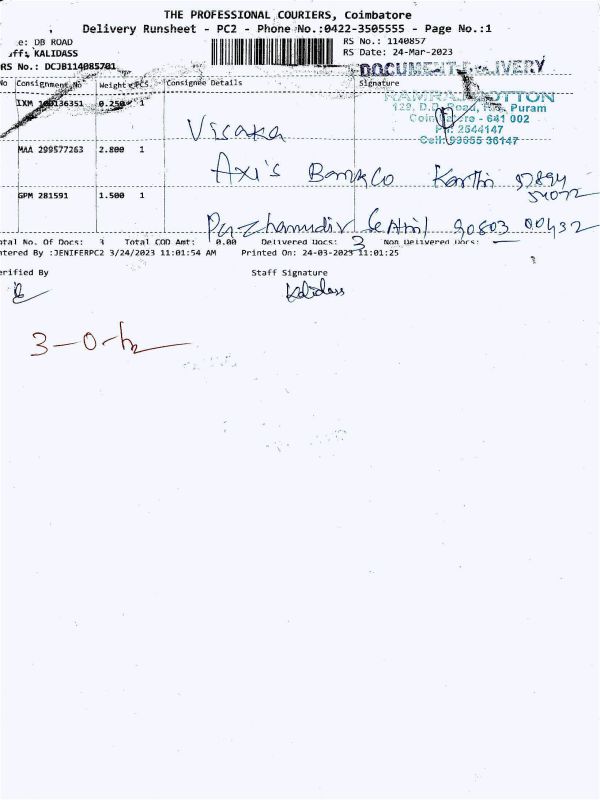 THE PROFESSIONAL COURIERS, Coimbatore
Delivery Runsheet - PC2 - Phone No.:0422-3505555 - Page No.:1
e: DB ROAD
RS No.: 1140857
aff: KALIDASS
RS Date: 24-Mar-2023
RS No.: DCJB114085701
DOCUMENT DELIVERY
No Consignment No Weight PCS. Consignee Details Signature
IXM 0.250 1
RAMRAJ COTTON
129, D.B. Road, R.S. Puram
Coimbatore - 641 002
Ph: 2544147
Cell: 93655 36147
Visaka
MAA 299577263 2.800 1
Axis Bank Co Karthi
GPM 281591 1.500 1
90803 00432
otal No. Of Docs: 3 Total COD Amt: 0.00 Delivered Docs: 3 Non Delivered Docs:
ntered By :JENIFERPC2 3/24/2023 11:01:54 AM Printed On: 24-03-2023 11:01:25
erified By Staff Signature
Kalidass